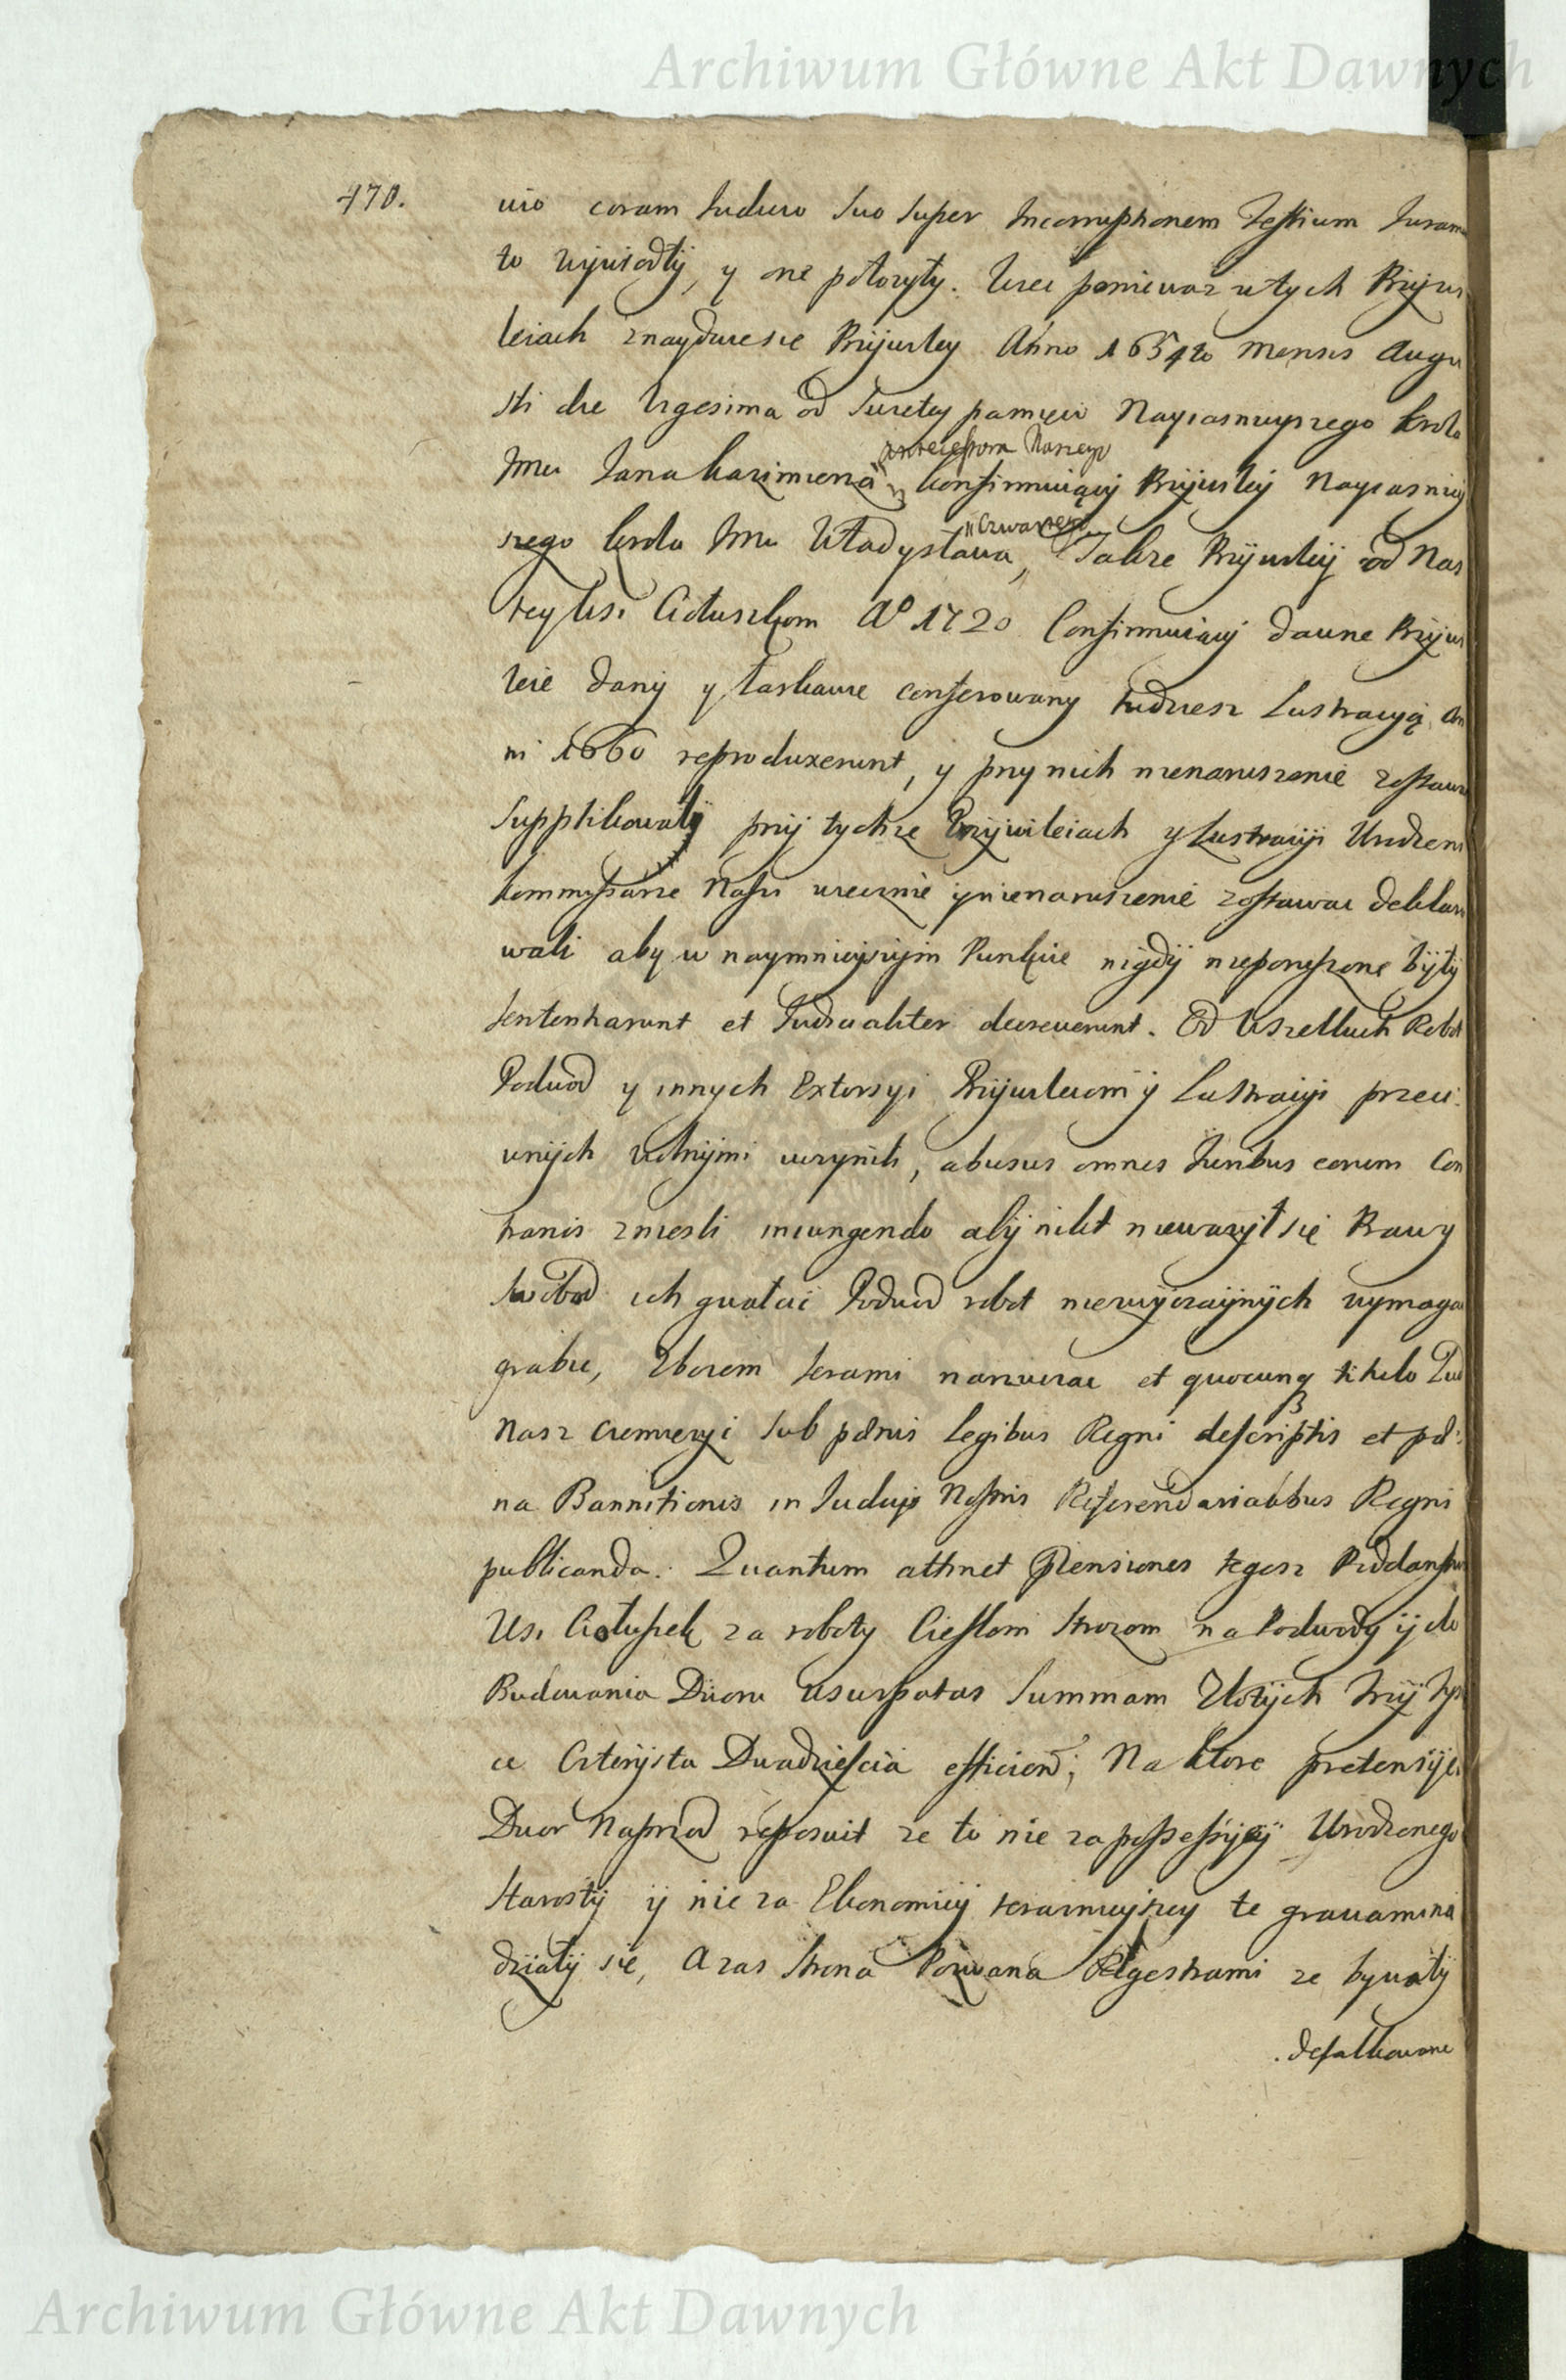 Archiwum Główne Akt Dawnych
470.
uio coram Judicio Suo Super Incorruptionem Testium Juram
to wywiodły, y one położyły. Wiec poniewaz w tych Przywi
leiach znayduie sie Przywiley Anno 1654to Mensis Augu
sti die Vigesima od Swietey pamięci Nayiasnieyszego Krola
Antecessora Naszego
Jmci Jana Kazimierza Konfirmuiący Przywiley Nayiasniey
Czwartego
szego Krola Jmci Władysława, Takze Przywiley od Nas
teyze Wsi Ciołuszkom Aº 1720 Confirmuiący dawne Przywi
leie dany y łaskawie conferowany tudziesz Lustracyą An
ni 1660 reproduxerunt, y przy nich nienaruszenie zostawac
Supplikowały przy tychze Przywileiach y Lustracyi Urodzeni
Kommissarze Nasi wiecznie y nienaruszenie zostawac deklaro
wali aby w naymnieyszym Punkcie nigdy nieporuszone były
Sententiarunt et Judicialiter decreverunt. Od Wszelkich Robot
Podwod y innych Extorsyi Przywileiom y Lustracyi przeci
wnych wolnymi uczynili, abusus omnes Juribus eorum Con
trarios zniesli iniungendo aby nikt niewazył się Prawy
Swobod ich gwałcic Podwod robot niezwyczaynych wymagac
grabic, Zborem Serami narzucac et quocunq titulo Lud
Nasz ciemiezyc Sub pænis Legibus Regni descriptis et pæ
na Bannitionis in Judicijs Nostris Referendarialibus Regni
publicanda. Quantum attinet Prætensiones tegosz Poddanstwa
Wsi Ciołuszek za roboty Cieslom Strozom na Podwody y do
Budowania Dworu usurpatas Summam Złotych trzy tysi
ce Czterysta Dwadziescia efficien; Na ktore pretensye
Dwor Naprzod reposuit ze to nie za possessyey Urodzonego
Starosty y nie za Ekonomiey teraznieyszey te gravamina
działy sie, A zas Strona Pozwana Regestrami ze bywały
defalkowane
Archiwum Główne Akt Dawnych